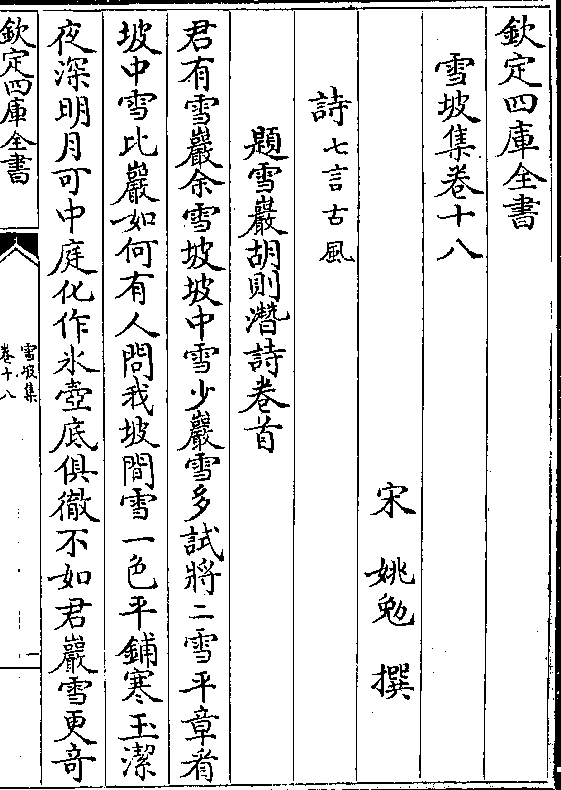 欽定四庫全書
雪坡集卷十八
宋 姚勉 撰
詩七言古風
題雪巖胡則潛詩卷首
君有雪巖余雪坡坡中雪少巖雪多試將二雪平章看
坡中雪比巖如何有人問我坡間雪一色平鋪寒玉潔
夜深明月可中庭化作氷壺底俱徹不如君巖雪更奇
欽定四庫全書
雪坡集
卷十八
一